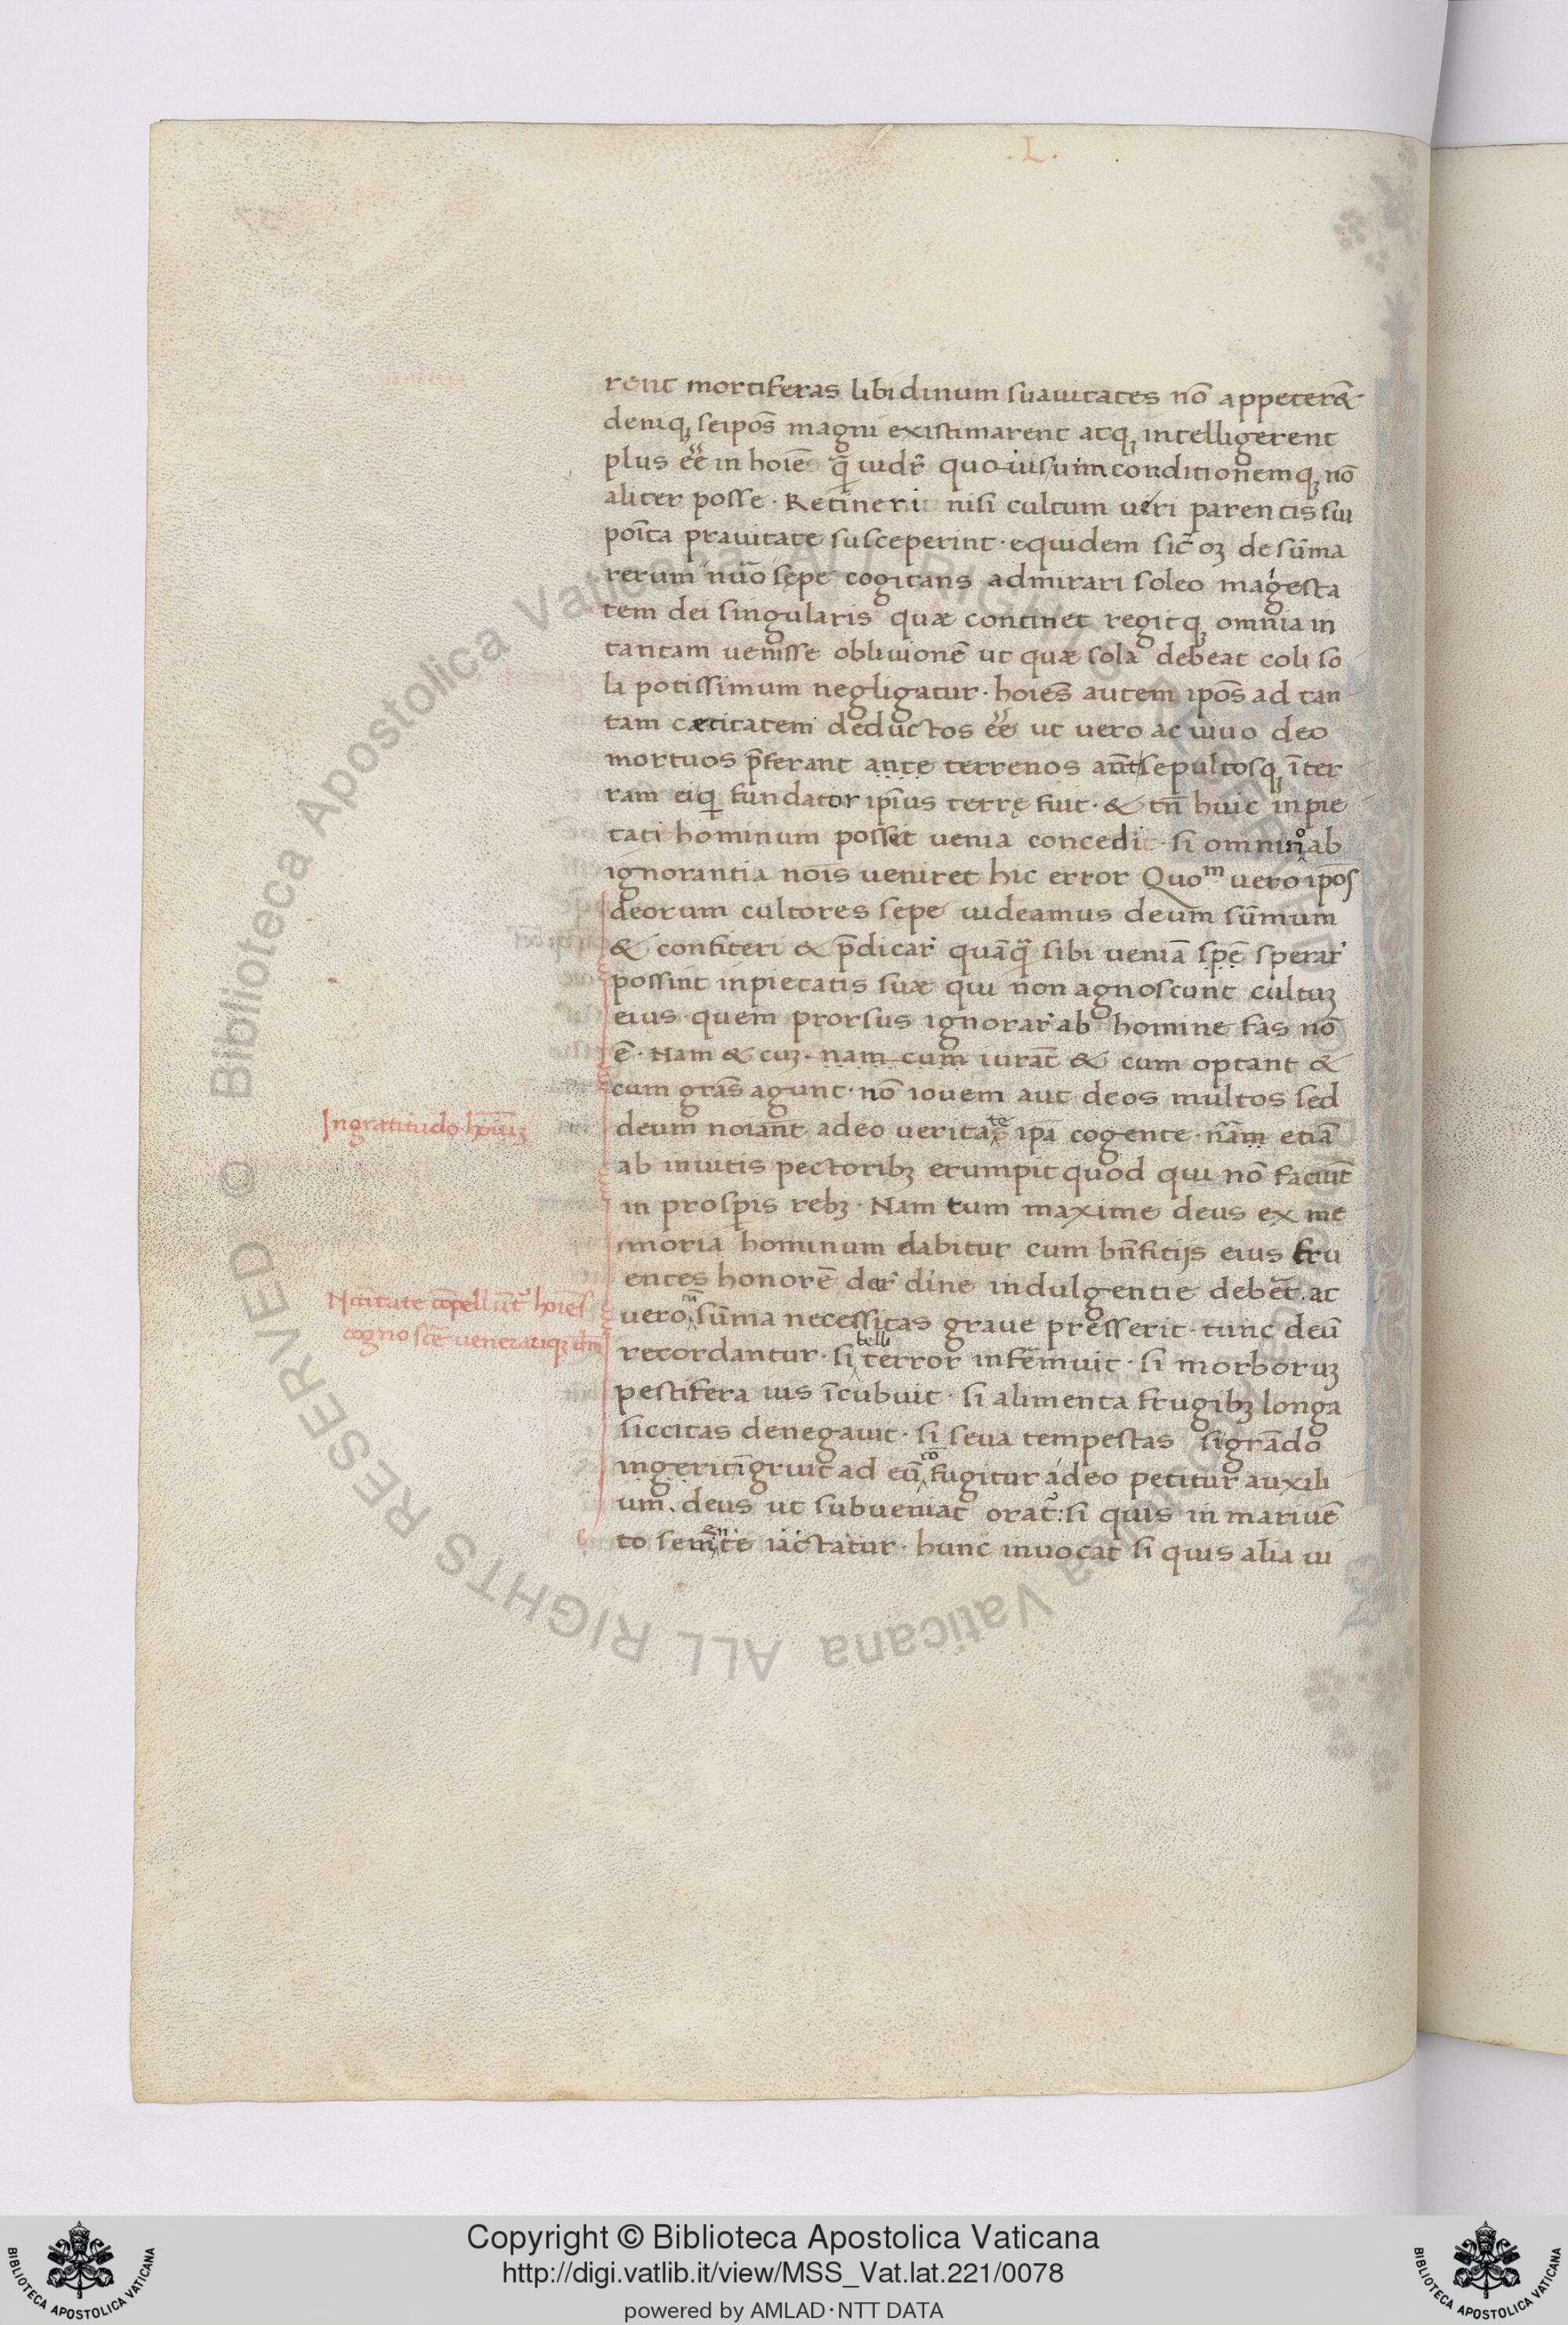 .L.
rent mortiferas libidinum suauitates nō appeter&̄
deniq; seipōs magni existimarent atq; intelligerent
plus ēē in hoīe q̄ uidr̄ quo uisuim conditionemq; nō
aliter posse · Retineri nisi cultum ueri parentis sui
poīta prauitate susceperint · equidem sic̄ oz de sūma
rerum nūo sępe cogitans admirari soleo magesta
tem dei singularis quæ continet regitq; omnia in
tantam uenisse obliuionē ut quæ sola debeat coli so
la potissimum negligatur · hoīes autem ipōs ad tan
tam cæcitatem deductos ēē ut uero ac uiuo deo
mortuos p̄ferant ante terrenos aūt sepultosq; īter
ram eiq fundator ipīus terrę fuit · & tn̄ huic inpie
tati hominum posset uenia concedi · si omnino ab
ignorantia nōis ueniret hic error Quom uero ipōs
deorum cultores sepe uideamus deum sūmum
& confiteri & p̄dicar̄ quāq̄ sibi ueniā spē sperar̄
possint inpietatis suæ qui non agnoscunt cultuz
eius quem prorsus ignorar̄ ab homine fas nō
ē · Nam & cuz · nam cum iurāt & cum optant &
cum grās agunt · nō iouem aut deos multos sed
Ingratitudo hoīuz
deum noīant adeo veritate ipā cogente · nām etiā
ab inuitis pectoribz erumpit quod qui nō faciūt
in prosp̄is rebz · Nam tum maxime deus ex me
moria hominum elabitur cum bn̄fitijs eius fru
entes honorē dar̄ diīne indulgentie debēt · ac
Nccītate cōpellūt̄ hoīes
cognoscē uenerariqz dm̄
uero sūma necessitas graue presserit · tunc deū
recordantur · si belli terror infemuit · si morboruz
pestifera uis īcubuit · si alimenta frugibz longa
siccitas denegauit · si seua tempestas si grādo
ingerit īgruit ad eū cōfugitur a deo petitur auxili
um · deus ut subueniat orat̄ : si quis in mari uē
to seuiente iactatur · hunc inuocat si quis alia ui
Copyright © Biblioteca Apostolica Vaticana
http://digi.vatlib.it/view/MSS_Vat.lat.221/0078
powered by AMLAD·NTT DATA
BIBLIOTECA APOSTOLICA VATICANA
BIBLIOTECA APOSTOLICA VATICANA
© Biblioteca Apostolica Vaticana ALL RIGHTS RESERVED